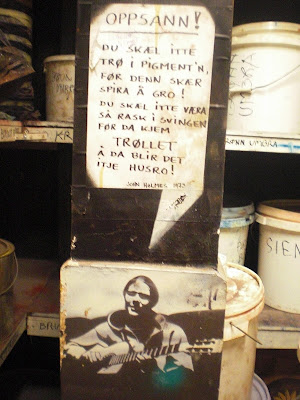 OPPSANN!
DU SKÆL ITTE
TRØ I PIGMENT'N,
FØR DENN SKÆR
SPIRA Å GRO!
DU SKÆL ITTE VÆRA
SÅ RASK I SVINGEN
FØR DA KJEM
TRØLLET
Å DA BLIR DET
ITJE HUSRO!
JOHN HOLMES 1973
UMBRA
SIEN